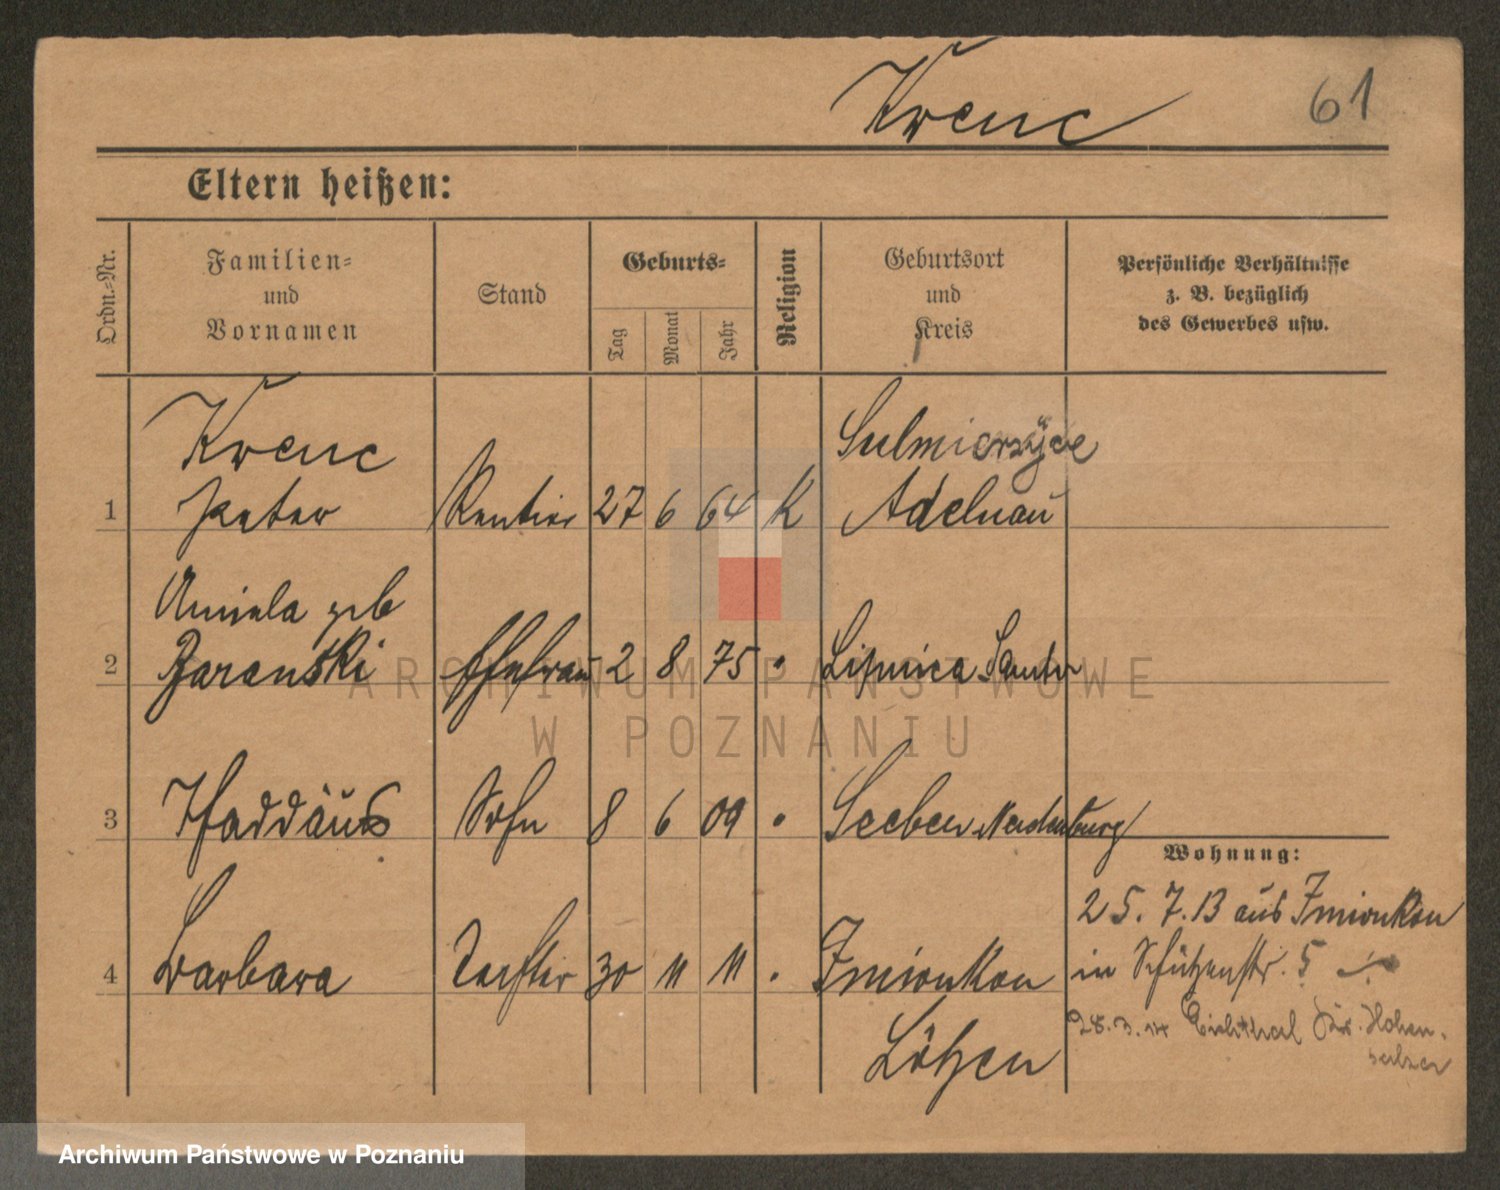 Krenc
61
Eltern heißen:
Ordn.-Nr.
Familien-
und
Vornamen
Stand
Geburts-
Tag
Monat
Jahr
Religion
Geburtsort
und
Kreis
Persönliche Verhältnisse
z. B. bezüglich
des Gewerbes usw.
Krenc
1 Peter Rentier 27 6 64 K
Sulmierzyce
Adelnau
Aniela geb
2 Baranski Ehefrau 2 8 75 " Lipnica Samter
3 Thaddäus Sohn 8 6 09 " Seeben Neidenburg
4 Barbara Tochter 30 11 11 "
Lötzen
Wohnung:
25. 7. 13 aus
in Schützenstr. 5
28. 3. 14 Eichthal Kr. Hohen-
salza
ARCHIWUM PAŃSTWOWE
W POZNANIU
Archiwum Państwowe w Poznaniu